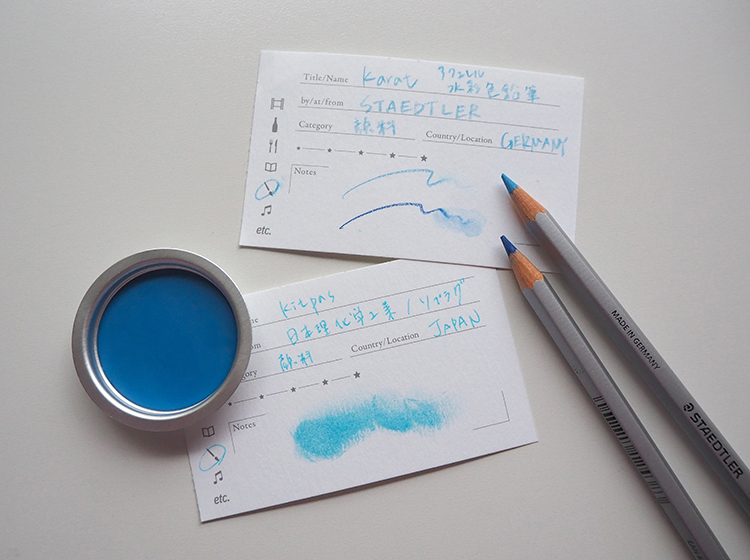 Title/Name Karat アクェレル
水彩色鉛筆
by/at/from STAEDTLER
Category 顔料 Country/Location GERMANY
Notes
etc.
kitpas
om 日本理化学工業 / リプラグ
gory 顔料 Country/Location JAPAN
Notes
etc.
MADE IN GERMANY
STAEDTLER